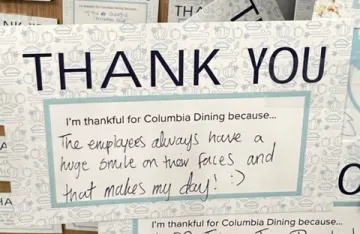 THANK YOU
I'm thankful for Columbia Dining because...
The employees always have a
huge smile on their faces and
that makes my day! :)
THANK YOU
I'm thankful for Columbia Dining because...